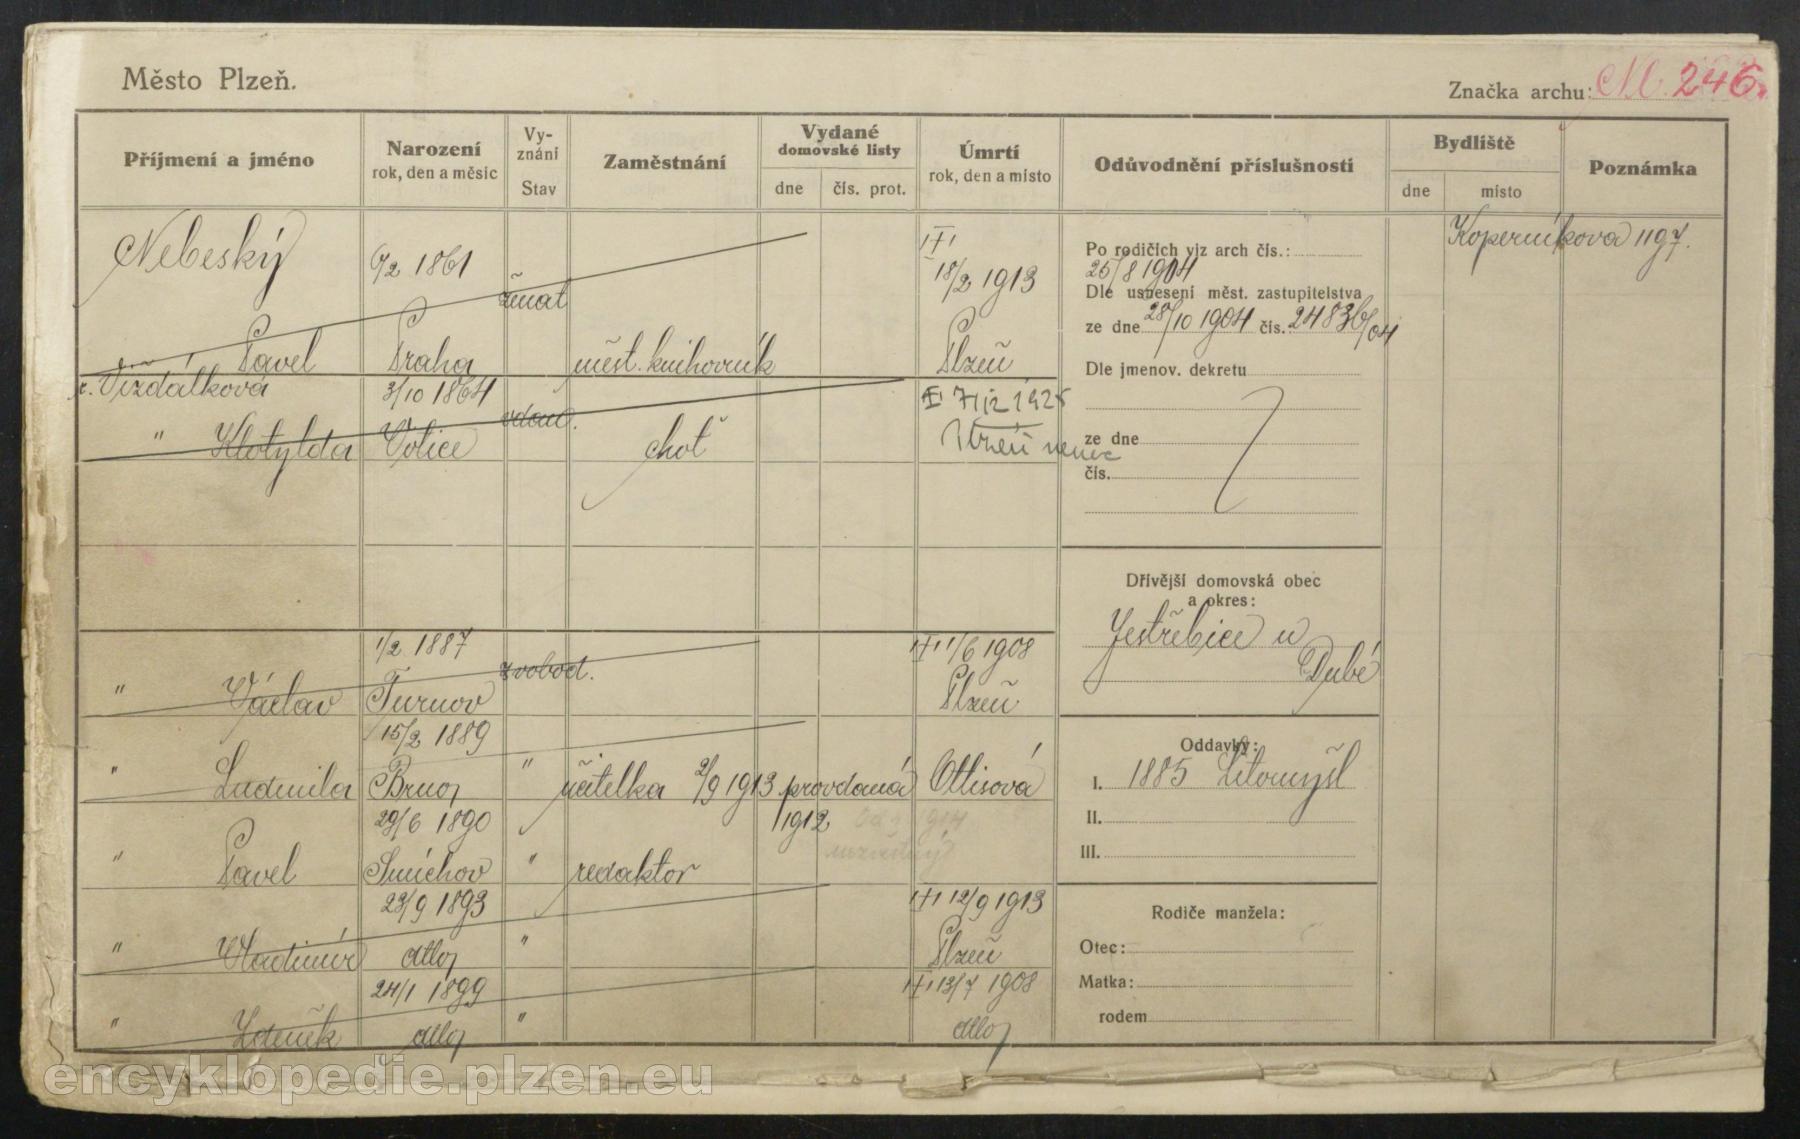 Město Plzeň.
Značka archu: N. 246.
Příjmení a jméno
Narození
rok, den a měsíc
Vy-
znání
Stav
Zaměstnání
Vydané
domovské listy
dne
čís. prot.
Úmrtí
rok, den a místo
Odůvodnění příslušnosti
Bydliště
dne
místo
Poznámka
Nebeský
6/2 1861
ženat
18/2 1913
Pavel
Praha
měst. knihovník
Plzeň
r. Vizdálková
3/10 1864
vdan.
" Klotylda
Votice
choť
Plzeň
Po rodičích viz arch čís.:
25/8 1904
Dle usnesení měst. zastupitelstva
ze dne 28/10 1904 čís. 24836/04
Dle jmenov. dekretu
ze dne
čís.
Koperníkova 1197.
Dřívější domovská obec
a okres:
Jestřebice u
Dubé
1/2 1887
svobod.
1/6 1908
" Václav
Turnov
Plzeň
15/2 1889
" Ludmila
Brno
"
učitelka 2/9 1913 provdaná Ottisová
29/6 1890
1912
" Pavel
Smíchov
"
redaktor
23/9 1893
12/9 1913
" Vladimír
dtto
"
Plzeň
24/1 1899
13/7 1908
" Zdeněk
dtto
"
dtto
Oddavky:
I. 1885 Litomyšl
II.
III.
Rodiče manžela:
Otec:
Matka:
rodem
encyklopedie.plzen.eu